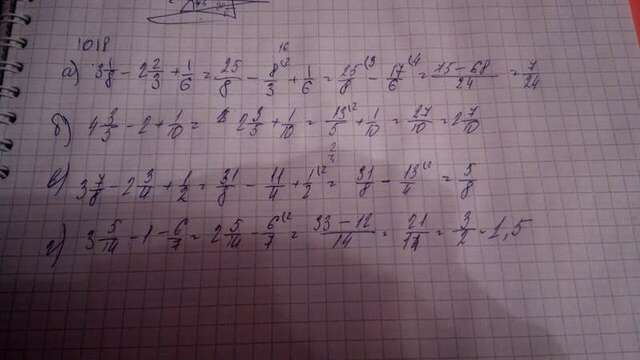 1018
а) 3 1/8 - 2 2/3 + 1/6 = 25/8 - 8/3 + 1/6 = 25/8 - 17/6 = (75 - 68)/24 = 7/24
б) 4 3/5 - 2 + 1/10 = 2 3/5 + 1/10 = 13/5 + 1/10 = 27/10 = 2 7/10
в) 3 7/8 - 2 3/4 + 1/2 = 31/8 - 11/4 + 1/2 = 31/8 - 13/4 = 5/8
г) 3 5/14 - 1 - 6/7 = 2 5/14 - 6/7 = (33 - 12)/14 = 21/14 = 3/2 = 1,5